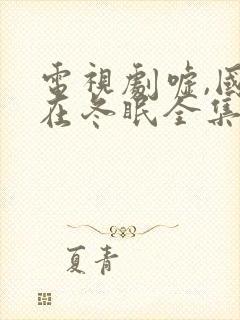 電視劇嘘,國
在冬眠全集
夏青